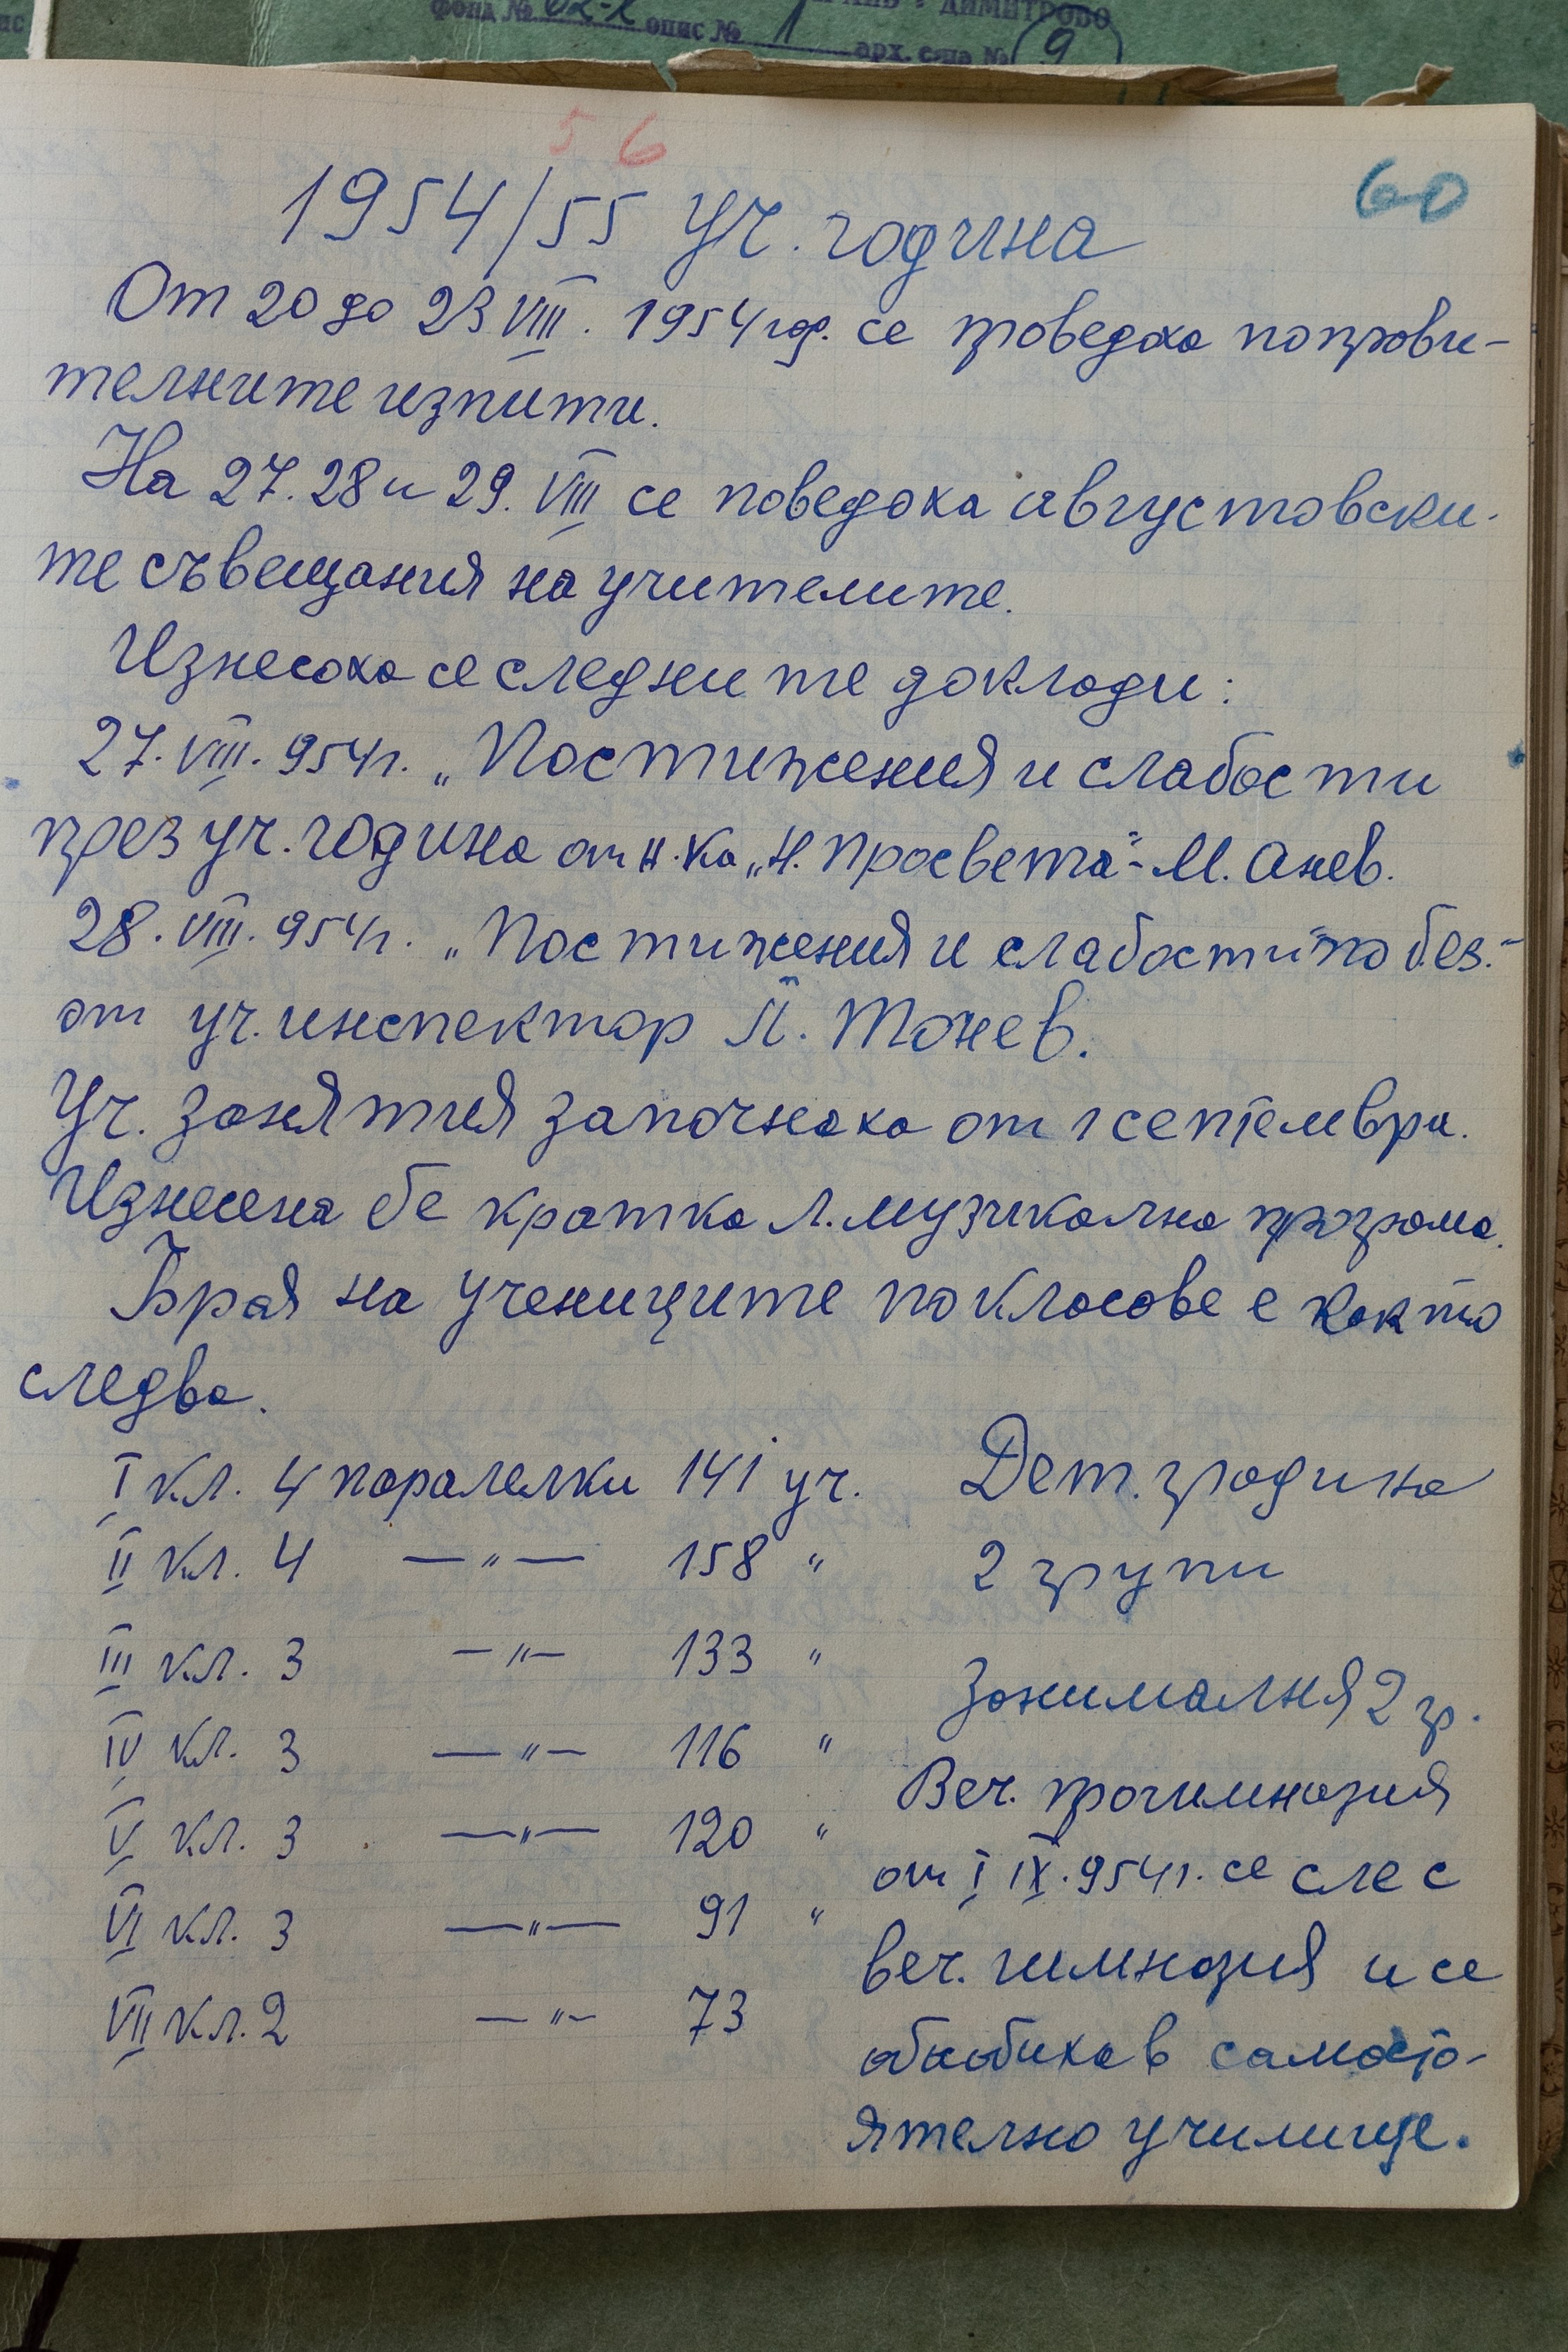 фонд № опис № 1 арх. ед-ца № 9
ДИМИТРОВО
56
60
1954/55 уч. година
От 20 до 23 VIII. 1954 год. се проведоха поправи-
телните изпити.
На 27. 28 и 29. VIII се поведоха августовски-
те съвещания на учителите.
Изнесоха се следните доклади:
27. VIII. 954 г. „Постижения и слабости
през уч. година от н-ка „Н. Просвета" - М. Анев.
28. VIII. 954 г. „Постижения и слабости" по без. -
от уч. инспектор П. Тонев.
Уч. занятия започнаха от 1 септември.
Изнесена бе кратка л. музикална програма.
Броя на учениците по класове е както
следва.
I кл. 4 паралелки 141 уч.
II кл. 4 — „ — 158 „
III кл. 3 — „ — 133 „
IV кл. 3 — „ — 116 „
V кл. 3 — „ — 120 „
VI кл. 3 — „ — 91 „
VII кл. 2 — „ — 73
Дет. градина
2 групи
Занималня 2 гр.
Веч. прогимназия
от I IX. 954 г. се сле с
веч. гимназия и се
обособиха в самосто-
ятелно училище.